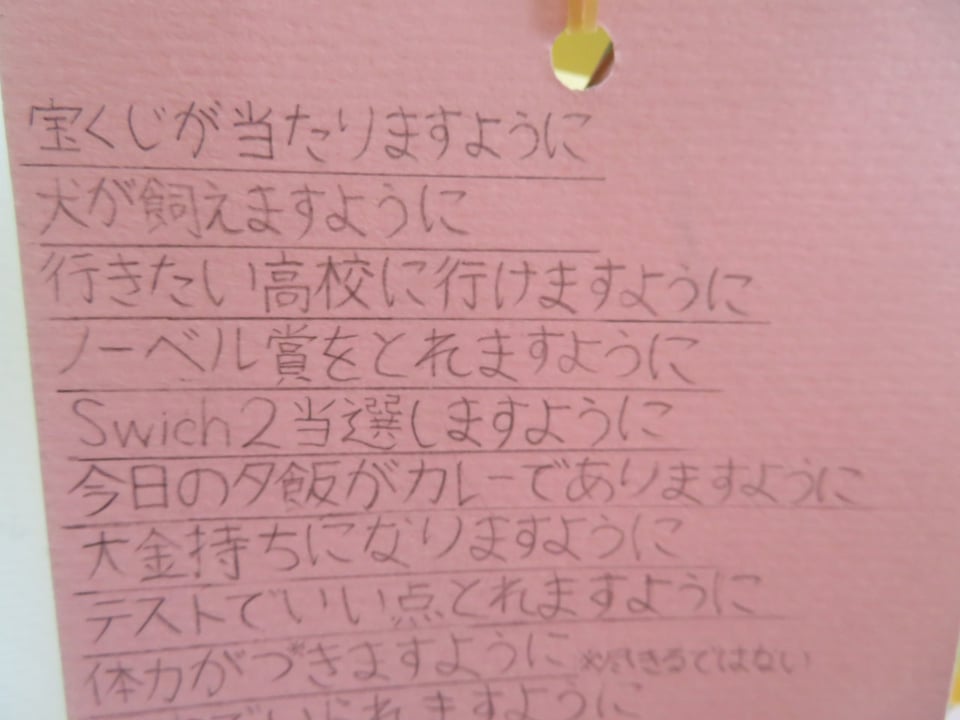 宝くじが当たりますように
犬が飼えますように
行きたい高校に行けますように
ノーベル賞をとれますように
Swich2当選しますように
今日の夕飯がカレーでありますように
大金持ちになりますように
テストでいい点とれますように
体力がつ※きますように ※尽きるではない
でいられますように